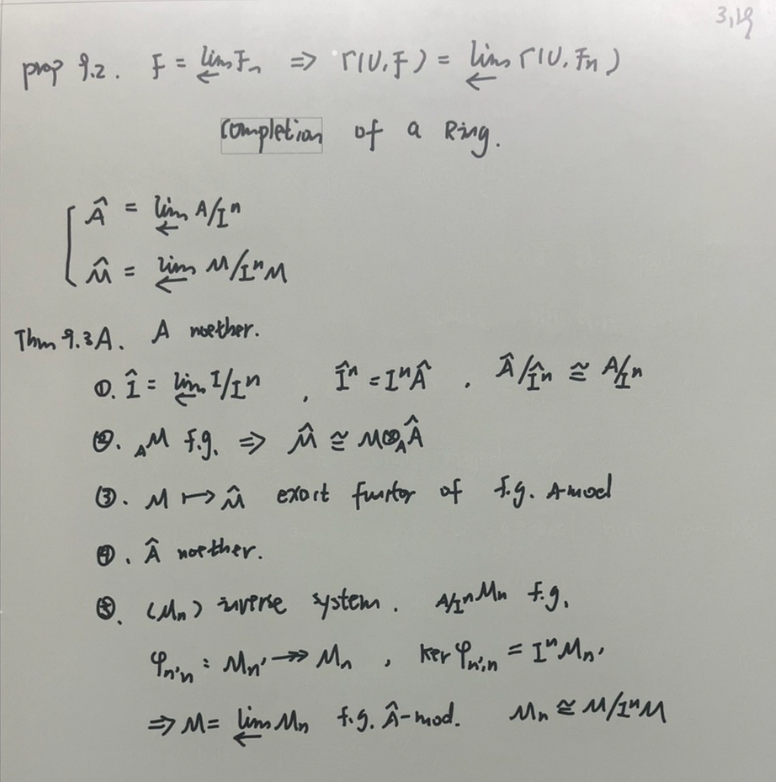 3,19
prop 9.2. F = lim← Fₙ ⇒ Γ(U,F) = lim← Γ(U,Fₙ)
Completion of a Ring.
Â = lim← A/Iⁿ
M̂ = lim← M/IⁿM
Thm 9.3A. A noether.
①. Î = lim← I/Iⁿ , Îⁿ = IⁿÂ , Â/Îⁿ ≅ A/Iⁿ
②. ₐM f.g. ⇒ M̂ ≅ M⊗ₐÂ
③. M ↦ M̂ exact functor of f.g. A-mod
④. Â noether.
⑤. (Mₙ) inverse system. A/Iⁿ Mₙ f.g.
φₙ'ₙ : Mₙ' ↠ Mₙ , ker φₙ',ₙ = IⁿMₙ'
⇒ M = lim← Mₙ f.g. Â-mod. Mₙ ≅ M/IⁿM